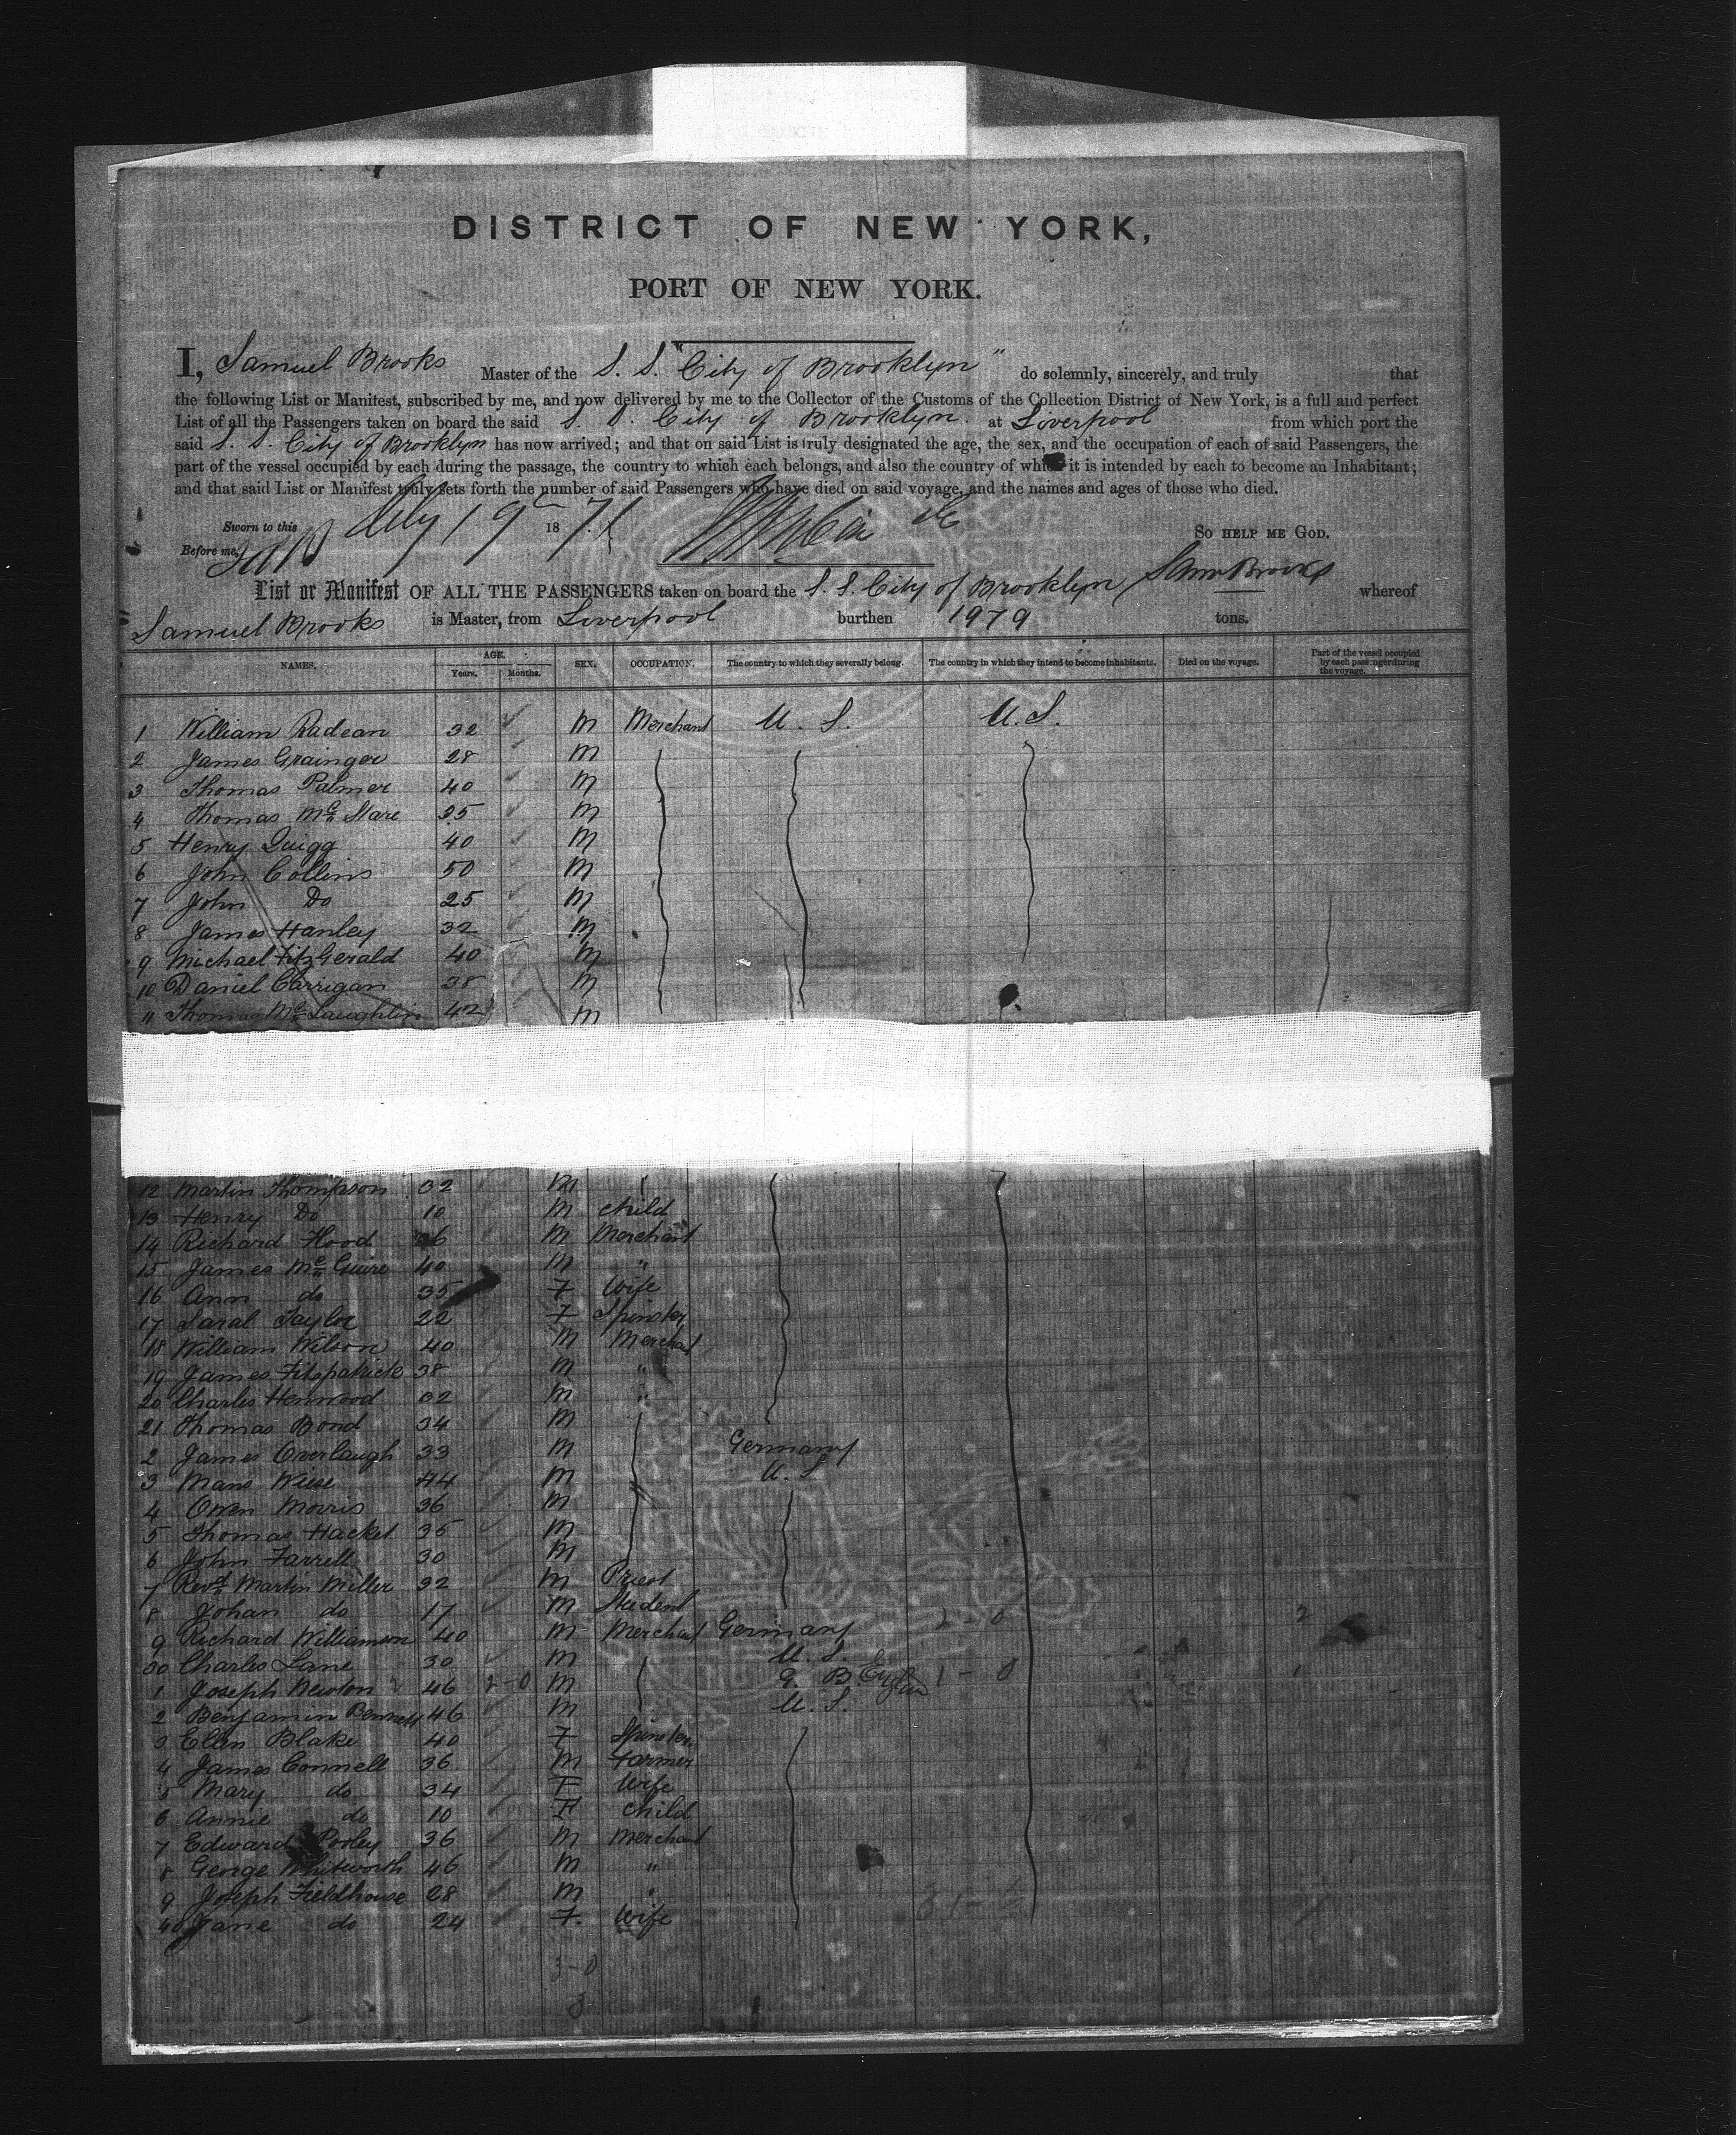 DISTRICT OF NEW YORK,
PORT OF NEW YORK.
I, Samuel Brooks Master of the S. S. "City of Brooklyn" do solemnly, sincerely, and truly that
the following List or Manifest, subscribed by me, and now delivered by me to the Collector of the Customs of the Collection District of New York, is a full and perfect
List of all the Passengers taken on board the said S. S. City of Brooklyn. at Liverpool from which port the
said S. S. City of Brooklyn has now arrived; and that on said List is truly designated the age, the sex, and the occupation of each of said Passengers, the
part of the vessel occupied by each during the passage, the country to which each belongs, and also the country of which it is intended by each to become an Inhabitant;
and that said List or Manifest truly sets forth the number of said Passengers who have died on said voyage, and the names and ages of those who died.
Sworn to this 19 1871
So help me God.
Before me,
List or Manifest OF ALL THE PASSENGERS taken on board the S. S. City of Brooklyn Sam Brooks whereof
Samuel Brooks is Master, from Liverpool burthen 1979 tons.
NAMES. AGE. Years. Months. SEX. OCCUPATION. The country to which they severally belong. The country in which they intend to become inhabitants. Died on the voyage. Part of the vessel occupied by each passenger during the voyage.
1 William Radean 32 M Merchant U. S. U. S.
2 James Grainger 28 M
3 Thomas Palmer 40 M
4 Thomas Mc Stare 35 M
5 Henry Quigg 40 M
6 John Collins 50 M
7 John Do 25 M
8 James Hanley 32 M
9 Michael FitzGerald 40 M
10 Daniel Carrigan 38 M
11 Thomas Mc Laughlin 42 M
12 Martin Thompson 32 M "
13 Henry Do 10 M child
14 Richard Hood 36 M Merchant
15 James Mc Guire 40 M "
16 Ann do 35 F Wife
17 Sarah Taylor 22 F Spinster
18 William Wilson 40 M Merchant
19 James Fitzpatrick 38 M "
20 Charles Henwood 32 M "
21 Thomas Bond 34 M
2 James Overlaugh 33 M Germany
3 Mans Wiese 44 M U. S
4 Owen Morris 36 M
5 Thomas Hacket 35 M
6 John Farrell 30 M
7 Revd Martin Miller 32 M Priest
8 Johan do 17 M Student 2-0 2
9 Richard Williamson 40 M Merchant Germany
30 Charles Lane 30 M U. S.
1 Joseph Newton 46 2-0 M G. B. 1-0 1
2 Benjamin Bennett 46 M U. S.
3 Ellen Blake 40 F Spinster
4 James Connell 36 M Farmer
5 Mary do 34 F Wife
6 Annie do 10 F child
7 Edward Pooley 36 M Merchant
8 George Whitworth 46 M "
9 Joseph Fieldhouse 28 M "
40 Jane do 24 F. Wife
3-0
3